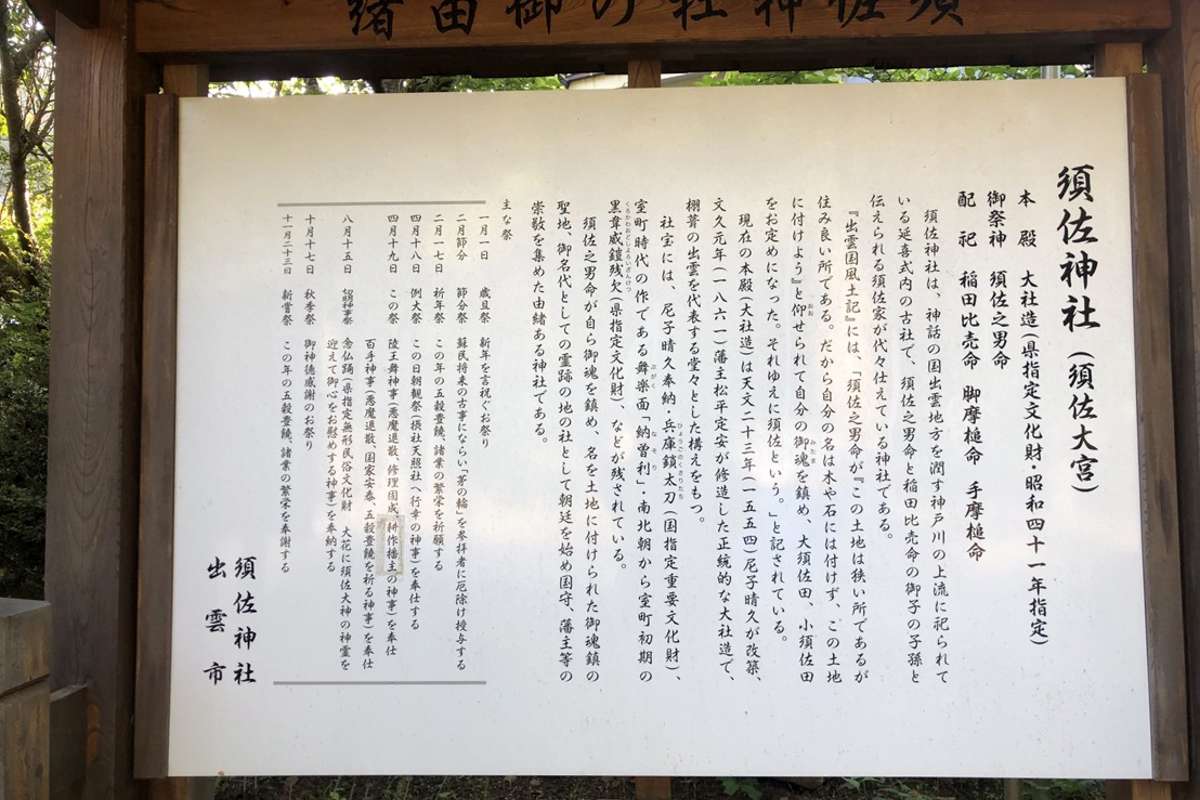 須佐神社の御由緒
須佐神社(須佐大宮)
本殿 大社造(県指定文化財・昭和四十一年指定)
御祭神 須佐之男命
配祀 稲田比売命 脚摩槌命 手摩槌命
須佐神社は、神話の国出雲地方を潤す神戸川の上流に祀られて
いる延喜式内の古社で、須佐之男命と稲田比売命の御子の子孫と
伝えられる須佐家が代々仕えている神社である。
『出雲国風土記』には、「須佐之男命が『この土地は狭い所であるが
住み良い所である。だから自分の名は木や石には付けず、この土地
に付けよう』と仰せられて自分の御魂を鎮め、大須佐田、小須佐田
をお定めになった。それゆえに須佐という。」と記されている。
現在の本殿(大社造)は天文二十三年(一五五四)尼子晴久が改築、
文久元年(一八六一)藩主松平定安が修造した正統的な大社造で、
栩葺の出雲を代表する堂々とした構えをもつ。
社宝には、尼子晴久奉納・兵庫鎖太刀(国指定重要文化財)、
室町時代の作である舞楽面「納曽利」・南北朝から室町初期の
黒韋威鎧残欠(県指定文化財)、などが残されている。
須佐之男命が自ら御魂を鎮め、名を土地に付けられた御魂鎮の
聖地、御名代としての霊跡の地の社として朝廷を始め国守、藩主等の
崇敬を集めた由緒ある神社である。
主な祭
一月一日 歳旦祭 新年を言祝ぐお祭り
二月節分 節分祭 蘇民将来の古事にならい「茅の輪」を参拝者に厄除け授与する
二月一七日 祈年祭 この年の五穀豊饒、諸業の繁栄を祈願する
四月十八日 例大祭 この日朝覲祭(摂社天照社へ行幸の神事)を奉仕する
四月十九日 この祭 陵王舞神事(悪魔退散、修理固成、耕作播主の神事)を奉仕
百手神事(悪魔退散、国家安泰、五穀豊饒を祈る神事)を奉仕
八月十五日 切明神事祭 念仏踊(県指定無形民俗文化財 大花に須佐大神の神霊を
迎えて御心をお慰めする神事)を奉納する
十月十七日 秋季祭 御神徳感謝のお祭り
十一月二十三日 新嘗祭 この年の五穀豊饒、諸業の繁栄を奉謝する
須佐神社
出雲市